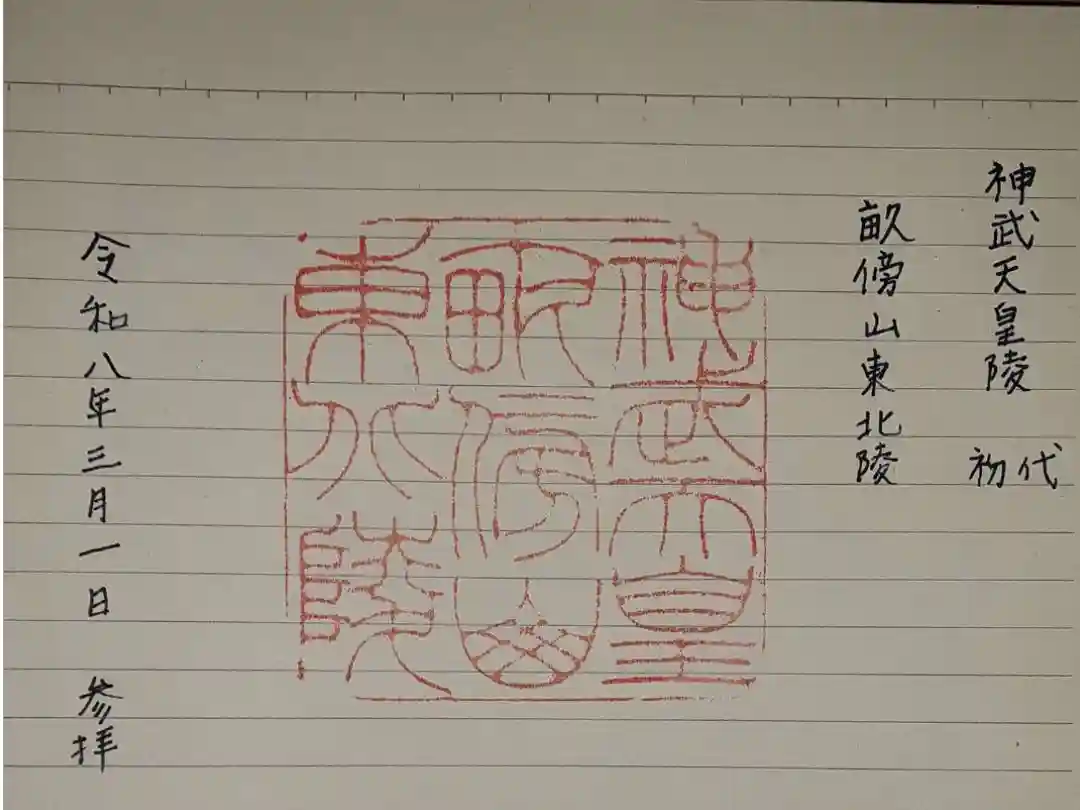 神武天皇陵 初代
畝傍山東北陵
神武天皇
畝傍山
東北陵
令和八年三月一日 参拝